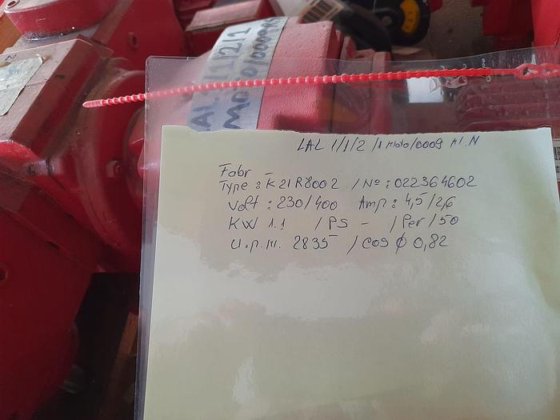 LAL 1/1/2
LAL 1/1/2 /1 Moto/0009 Al.N
Fabr
Type : K21R8002 / No : 022364602
Volt : 230/400 Amp : 4,5/2,6
KW 1.1 / PS - / Per / 50
U.p.m. 2835 / cos φ 0,82